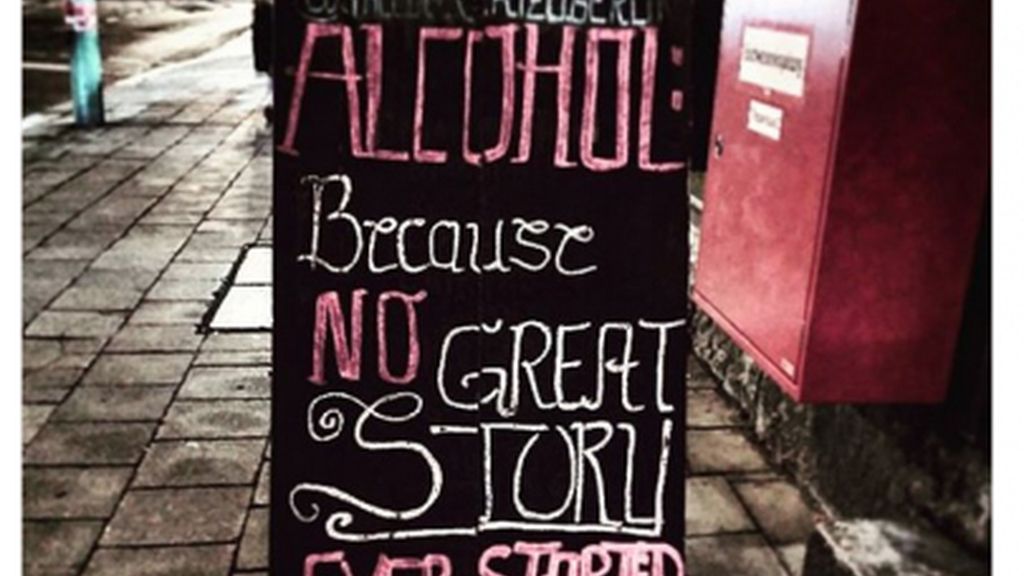 ALCOHOL:
Because
NO GREAT
STORY
EVER STARTED